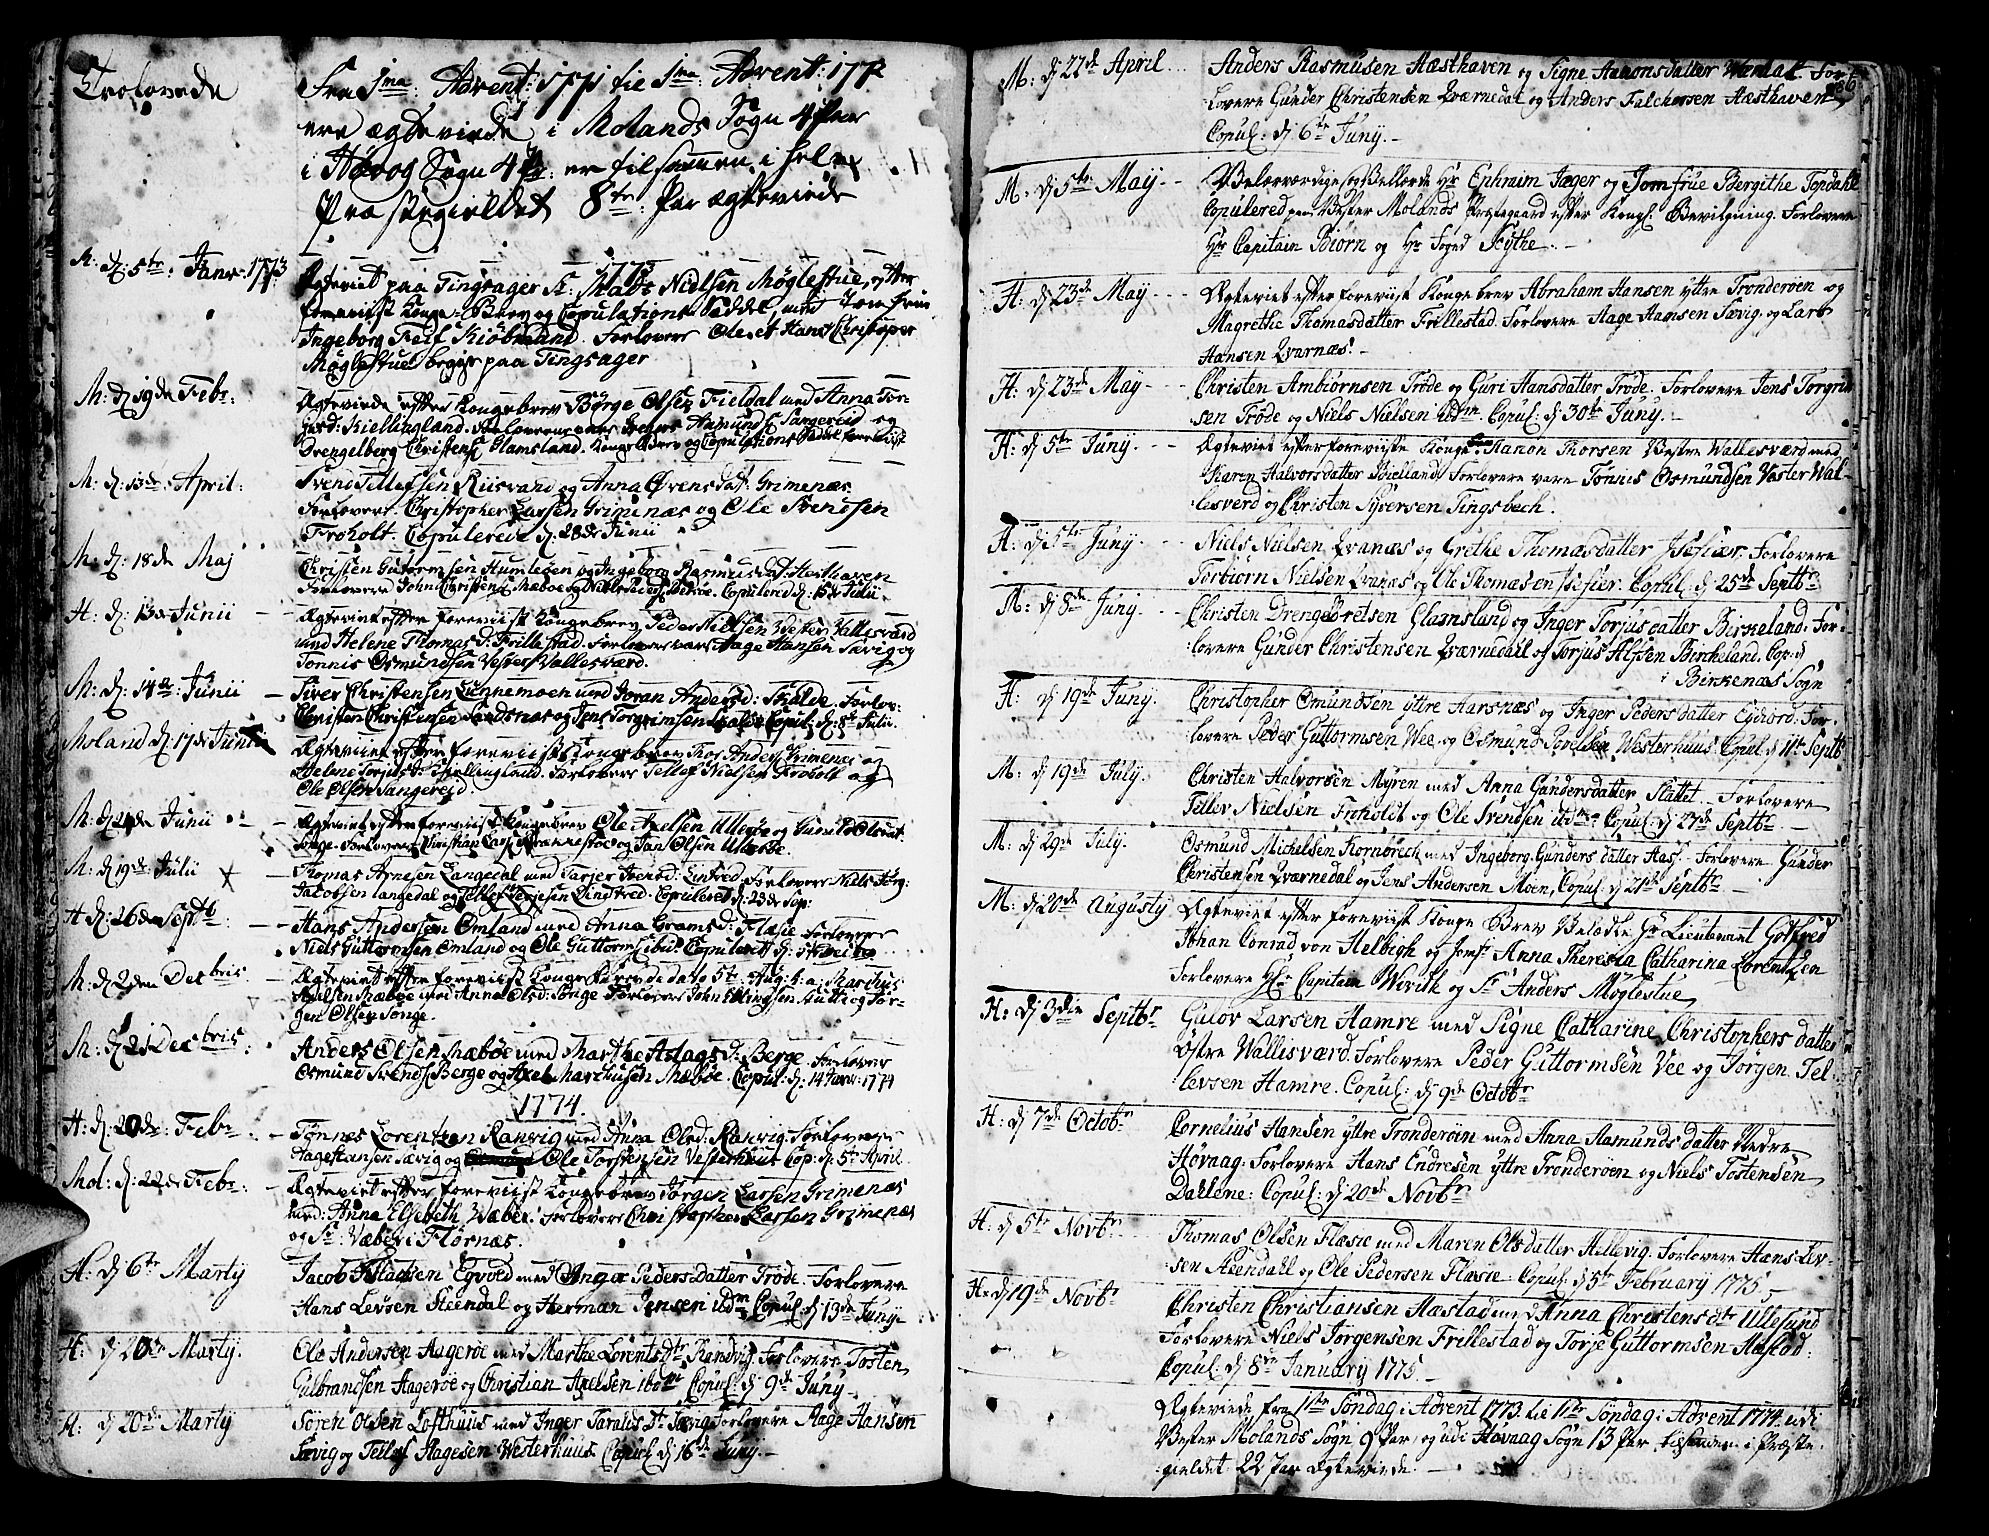 Trolovede
Fra 1ma Advent: 1771 til 1ma: Advent: 1772
ere ægteviede i Molands Sogn 4 Paar
i Høvog Sogn 4 Pr: er tilsammen i hele
Præstegieldet 8te: Par ægteviede
1773
M: d: 5te: Janv: 1773
Ægteviet paa Tingsager Sr. Mads Nielsen Møglestue, efter
foreviist Konge-Brev og Copulations Seddel, med Jomfrue
Ingeborg Kiøbmand. Forlovere Ole et Hans Christopher
Møglestue begge paa Tingsager
M: d: 19de Febr:
Ægteviede efter Kongebrev Børge Olsen Fieldal med Anna Tor-
Kiellingland. Forloverne ere Aamunds Sangereid og
Drengelberg Christens: Glamsland. Konge Brev og Copulations Seddel foreviist
M: d: 13de April:
Svend Tellefsen Riisvand og Anna Øvensdat: Grimenæs
Forlovere: Christopher Larsen Grimenæs og Ole Svendsen
Froholt. Copulerede d: 28de Junii
M: d: 18de Maj
Christen Gutormsen Humlegen og Ingeborg Rasmusdat: Hesthaven
Forlovere John Christens: Mæbøe og Copulered d: 15de Julii.
H: d: 13de Junii
Ægteviet efter foreviist Kongebrev Peder Nielsen Vester Vallesværd
med Helene Thomas D: Frillestad. Forlovere var Aage Hansen Sævig og
Tønnis Osmundsen Vester Vallesværd.
M: d: 14de: Junii
Siver Christensen Lunnemoen med Joran Andersd: Skalde. Forlov:
Christen Christensen Sandsnæs og Jens Torgrimsen Copul: d: 8de Julii.
Moland d: 17de Junii
Ægteviet efter foreviist Kongebrev Thor Anders: Grimenes og
Helene Torjusdr: Kiellingland. Forlovere Tellef Nielsen Froholt og
Ole Olsen Sangereid.
M: d: 24de Junii
Ægteviet efter foreviist Kongebrev Ole Axelsen Ulleøe og Guni
Songe. Forlovere Christian og Jan Olsen
M: d: 19de Julii
Thomas Arnesen Langedal med Tarjer Svensd: Lindfred, Forlovere Niels Jørg:
Jacobsen Langedal og Tellef Terjesen Lingfred. Copulered d: 23de Sep:
H d: 26de Septb
Hans Andersen Omland med Anna Gramsd: Flæsie Forlovere
Niels Guttormsen Omland og Ole Guttorms: ibid: Copuleret
M: d: 2den Decbris
Ægteviet efter foreviist Konge Brev de dato 5te Aug: h: a: Marthus
Axelsen Mæbøe med Anna Olsd: Songe Forlovere John Ellingsen og Jør-
gen Olsen Songe.
M: d: 21 Decbris
Anders Olsen Mæbøe med Marthe Aslags d: Berge Forlover
Osmund Svends: Berge og Axel Marthusen Mæbøe. Copul: d: 14 Janv: 1774
1774.
H: d: 20de: Febr:
Tønnes Lorentzen Ranvig med Anna Olsd: Ranvig. Forlovere
Aage Hansen Sævig og Ole Torstensen Vesterhuus Cop: d: 5te April
Mol: d: 22de Febr:
Ægteviet efter foreviist Kongebrev Jørgen Larsen Grimenæs
med: Anna Elsebeth Wæber. Forlovere Christopher Larsen Grimenæs
og Sr: Væber i Flornæs.
H. d 6te Martÿ
Jacob Egvold med Inger Peders Datter Trøde. Forlovere
Hans Levsen Steendal og Herman Jensen ibdm Copul. d 13de Junÿ
H: d 20de Martÿ.
Ole Andersen Aagerøe med Marthe Lorentsdtr Randvig. Forlovere Tosten
Gulbrandsen Aagerøe og Christian Axelsen ibdm Copul: d 9de Junÿ
H: d 20de Martÿ
Søren Olsen Lofthuus med Inger Taralds Dtr Sævig. Forlovere Aage Hansen
Sævig og Tellof Aagesen Westerhuus. Copul: d 16de Junÿ.
86
M: d 22de April
Anders Rasmusen Hæsthaven og Signe Aanonsdatter For-
lovere Gunder Christensen Qværnedal og Anders Falchersen Hæsthaven
Copul: d 6te Junÿ.
M: d 5te Maÿ
Velærværdige og Vellærde Hr Ephraim Jæger og Jomfrue Bergithe Topdahl
Copulered paa Vester Molands Præstegaard efter Kongl: Bevilgning. Forlovere
Hr Capitain Biørn og Hr Foged Sÿthe.
H: d 23de Maÿ
Ægteviet efter foreviist Konge brev Abraham Hansen ÿttre Trønderøen og
Magrethe Thomasdatter Frillestad. Forlovere Aage Hansen Sævig og Lars
Hansen Qvarnæs.
H: d 23de Maÿ
Christen Ambiørnsen Trøde og Guri Hansdatter Trøde. Forlovere Jens Torgrim
sen Trøde og Niels Nielsen ibdm Copul: d 30te Junÿ.
H: d 5te Junÿ.
Ægteviet efter foreviiste Konge Brev Aanon Thorsen Vestre Wallesværd med
Karen Halvorsdatter Bielland, Forlovere vare Tønnis Osmundsen Vester Wal-
lesverd og Christen Sÿversen Tingsbech.
H: d 5te Junÿ
Niels Nielsen Qvanæs og Grethe Thomasdatter Isefiær. Forlovere
Torbiørn Nielsen Qvanæs og Ole Thomasen Isefier. Copul: d 25de Septbr
M: d 8de Junÿ.
Christen Drengebretsen Glamsland og Inger Torjusdatter Birkeland. For-
lovere Gunder Christensen Qværnedall og Torjus Alfsen Birckeland. Cop: d
i Birkenæs Sogn
H: d 19de Junÿ.
Christopher Omundsen ÿttre Aarsnæs og Inger Peders datter Egdiord. For-
lovere Peder Guttormsen Wee og Osmund Povelsen Westerhuus. Copul: d 11te Septb
M: d 19de Julÿ.
Christen Halvorsen Mÿren med Anna Gundersdatter Slattet. Forlovere
Tellev Nielsen Froholdt og Ole Svendsen ibdm: Copul: d 27de Septbr
M: d 29de Julÿ.
Osmund Michelsen Kornbrech med Ingeborg Gunders datter Aas. Forlovere Gunder
Christensen Qværnedal og Jens Andersen Moen, Copul: d 21de Septbr
M: d 20de Augustÿ
Ægteviet efter foreviist Konge Brev Velædle Hr Lieutenant Gotfred
Johan Conrad von Helbigh og Jomf: Anna Theresia Catharina Lorentzen
Forlovere Hr Capitain Wirith og Sr Anders Møglestue
H: d 3die Septbr
Gulov Larsen Hamre med Signe Catharine Christophers datter
Østre Wallisværd. Forlovere Peder Guttormsen Vee og Jørgen Tel-
levsen Hamre. Copul: d 9de Octobr
H: d 7de Octobr
Cornelius Hansen ÿttre Trønderøen med Anna Aamunds datter Nedre
Høvaag. Forlovere Hans Endresen ÿttre Trønderøen og Niels Tostensen
Dahlene: Copul: d 20de Novbr
H: d 5te Novbr
Thomas Olsen Flæsie med Maren Olsdatter Hellevig. Forlovere Hans Lev-
sen Steendahl og Ole Pedersen Flæsie: Copul: d 5te Februarÿ 1775
H: d 19de Novbr
Christen Christiansen Hæstad med Anna Christens dtr Ullesund
Forlovere Niels Jørgensen Frillestad og Torje Guttormsen Hæstad.
Copul: d 8de Januarÿ 1775.
Ægteviede fra 1ste Søndag i Advent 1773. til 1ste Søndag i Advent 1774. udi
Vester Molands Sogn 9 Par, og udi Høvaag Sogn 13 Par, tilsammen i Præste-
gieldet 22 Par Ægteviede.